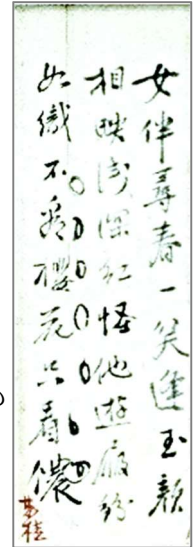 女伴尋春一笑逢玉顏
相映浅深紅怪他遊廠紛
如織不看櫻花只看儂